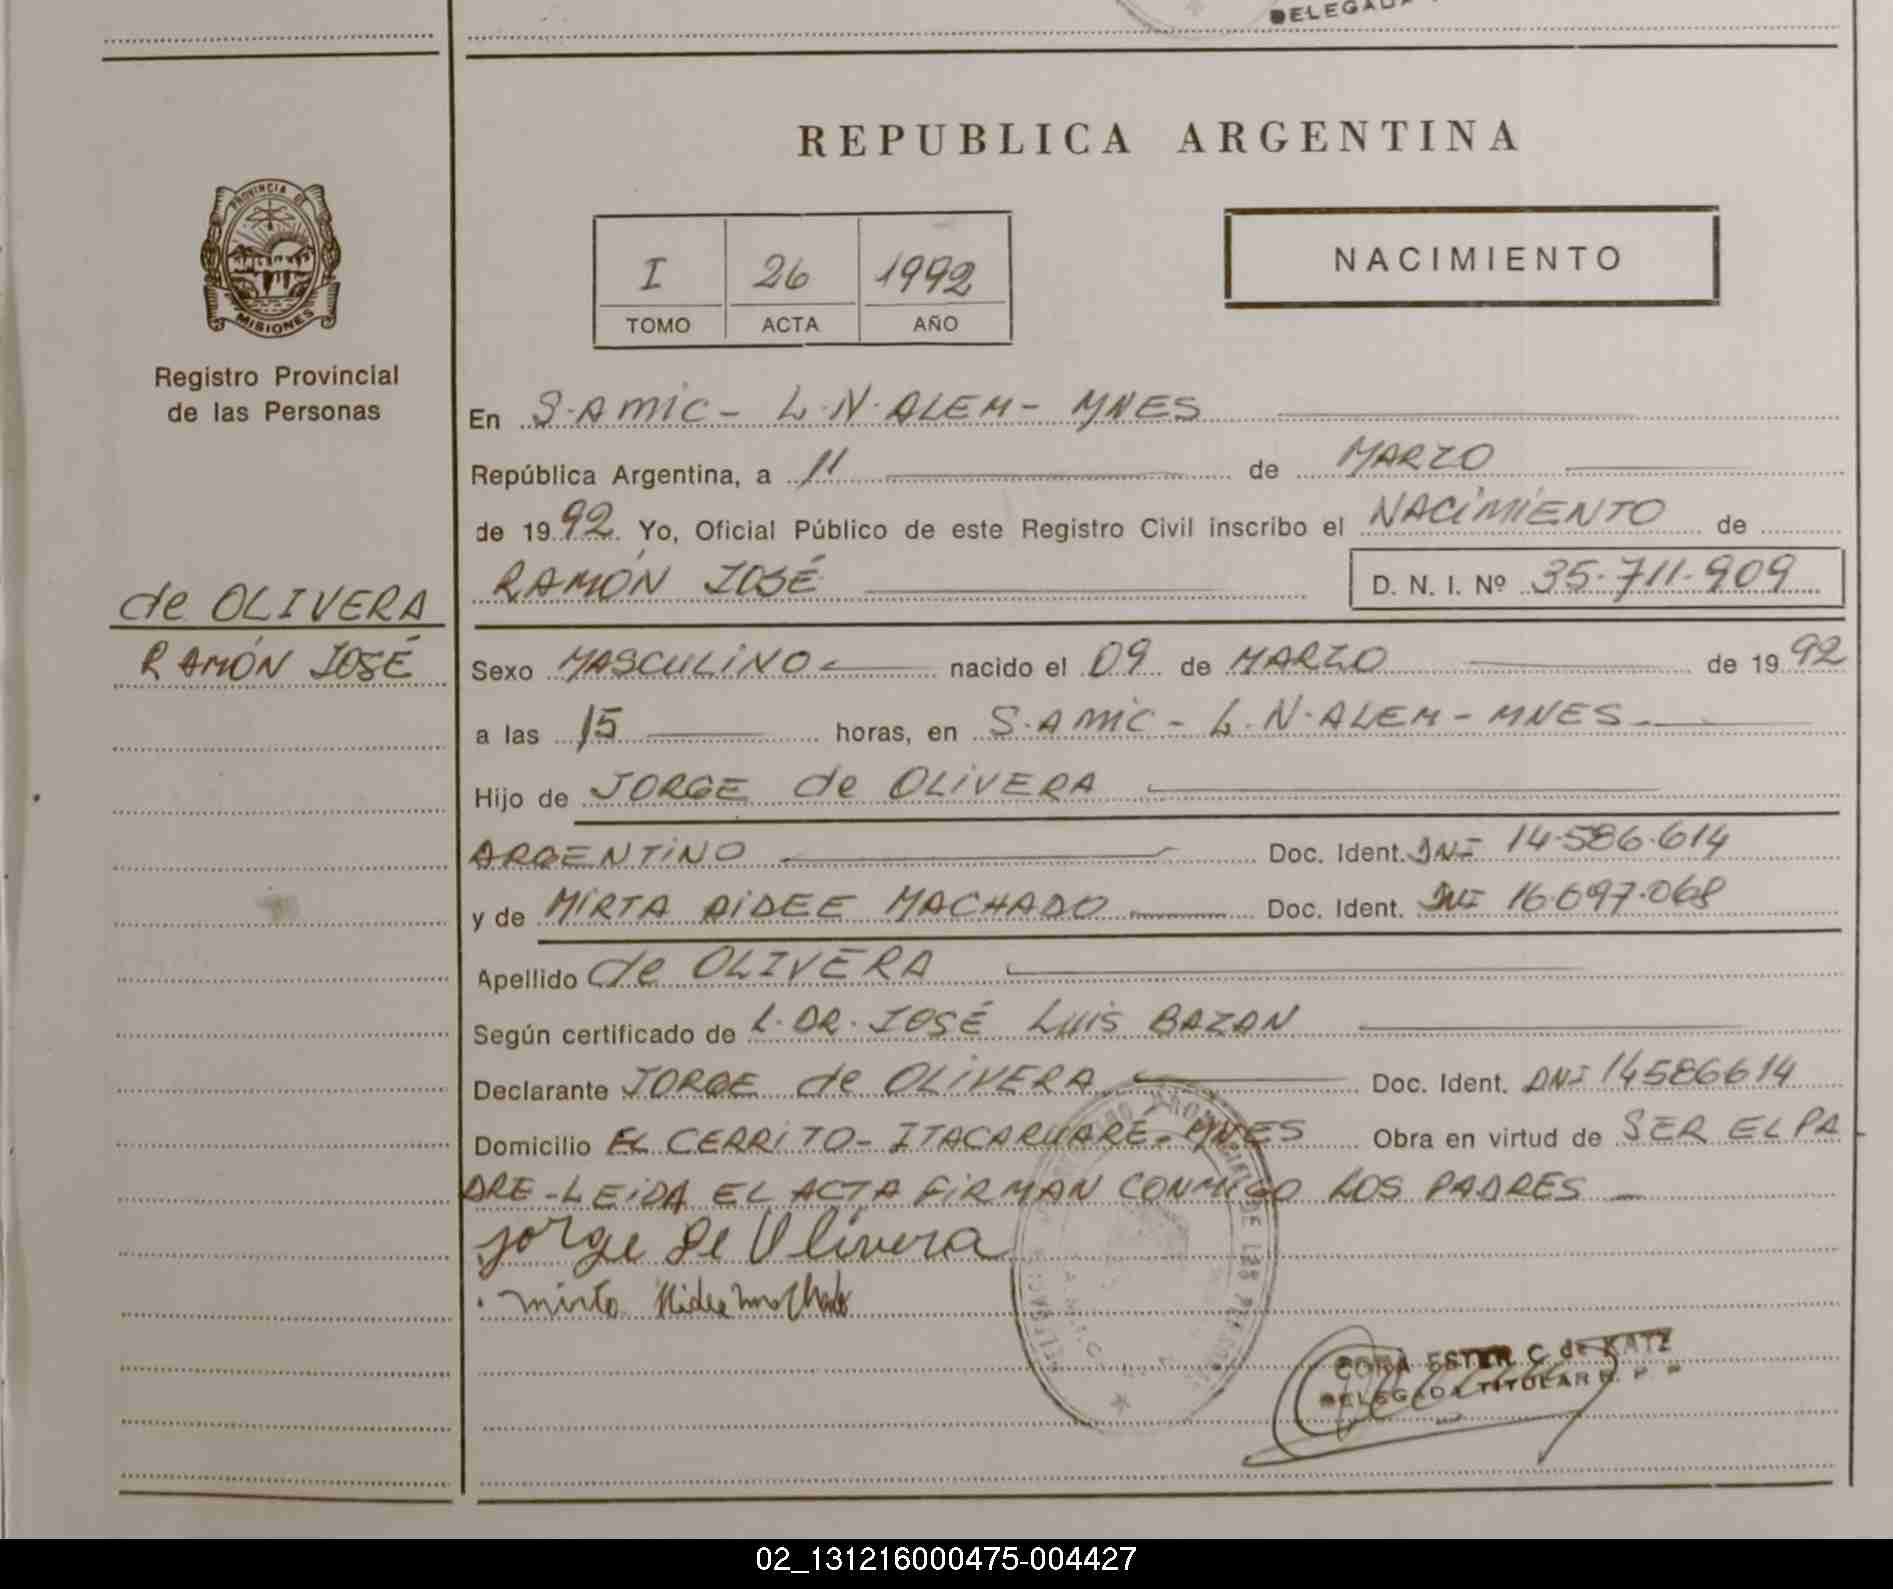 DELEGADA
REPUBLICA ARGENTINA
PROVINCIA DE
MISIONES
Registro Provincial
de las Personas
I 26 1992
TOMO ACTA AÑO
NACIMIENTO
En S. AMIC - L. N. ALEM - MNES
República Argentina, a 11 de MARZO
de 1992. Yo, Oficial Público de este Registro Civil inscribo el NACIMIENTO de
RAMÓN JOSÉ D. N. I. Nº 35.711.909
de OLIVERA
RAMÓN JOSÉ
Sexo MASCULINO nacido el 09 de MARZO de 1992
a las 15 horas, en S. AMIC - L. N. ALEM - MNES
Hijo de JORGE de OLIVERA
ARGENTINO Doc. Ident. DNI 14.586.614
y de MIRTA AIDEE MACHADO Doc. Ident. DNI 16.697.068
Apellido de OLIVERA
Según certificado de L. DR. JOSÉ LUIS BAZAN
Declarante JORGE de OLIVERA Doc. Ident. DNI 14586614
Domicilio EL CERRITO - ITACARUARÉ - MNES Obra en virtud de SER EL PA
DRE - LEIDA EL ACTA FIRMAN CONMIGO LOS PADRES
Jorge de Olivera
mirta Aidee machado
CORA ESTER C. de KATZ
DELEGADA TITULAR R. P. P.
02_131216000475-004427